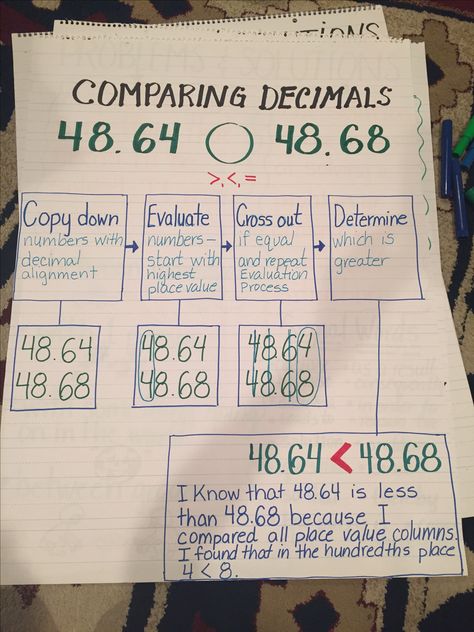 COMPARING DECIMALS
48.64 ◯ 48.68
>, <, =
Copy down
numbers with
decimal
alignment
Evaluate
numbers-
start with
highest
place value
Cross out
if equal
and repeat
Evaluation
Process
Determine
which is
greater
48.64
48.68
48.64
48.68
48.64
48.68
48.64 < 48.68
I Know that 48.64 is less
than 48.68 because I
compared all place value columns.
I found that in the hundredths place
4 < 8.